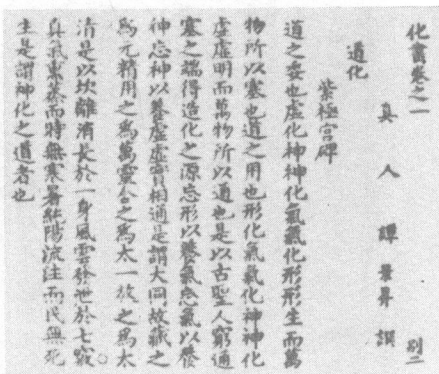 化書卷之一 別二
真人譚景昇譔
道化
紫極宮碑
道之委也虛化神神化氣氣化形形生而萬
物所以塞也道之用也形化氣氣化神神化
虛虛明而萬物所以通也是以古聖人窮通
塞之端得造化之源忘形以養氣忘氣以養
神忘神以養虛虛實相通是謂大同故藏之
爲元精用之爲萬靈合之爲太一放之爲太
清是以坎離消長於一身風雲發泄於七竅
真氣熏蒸而時無寒暑純陽流注而民無死
生是謂神化之道者也